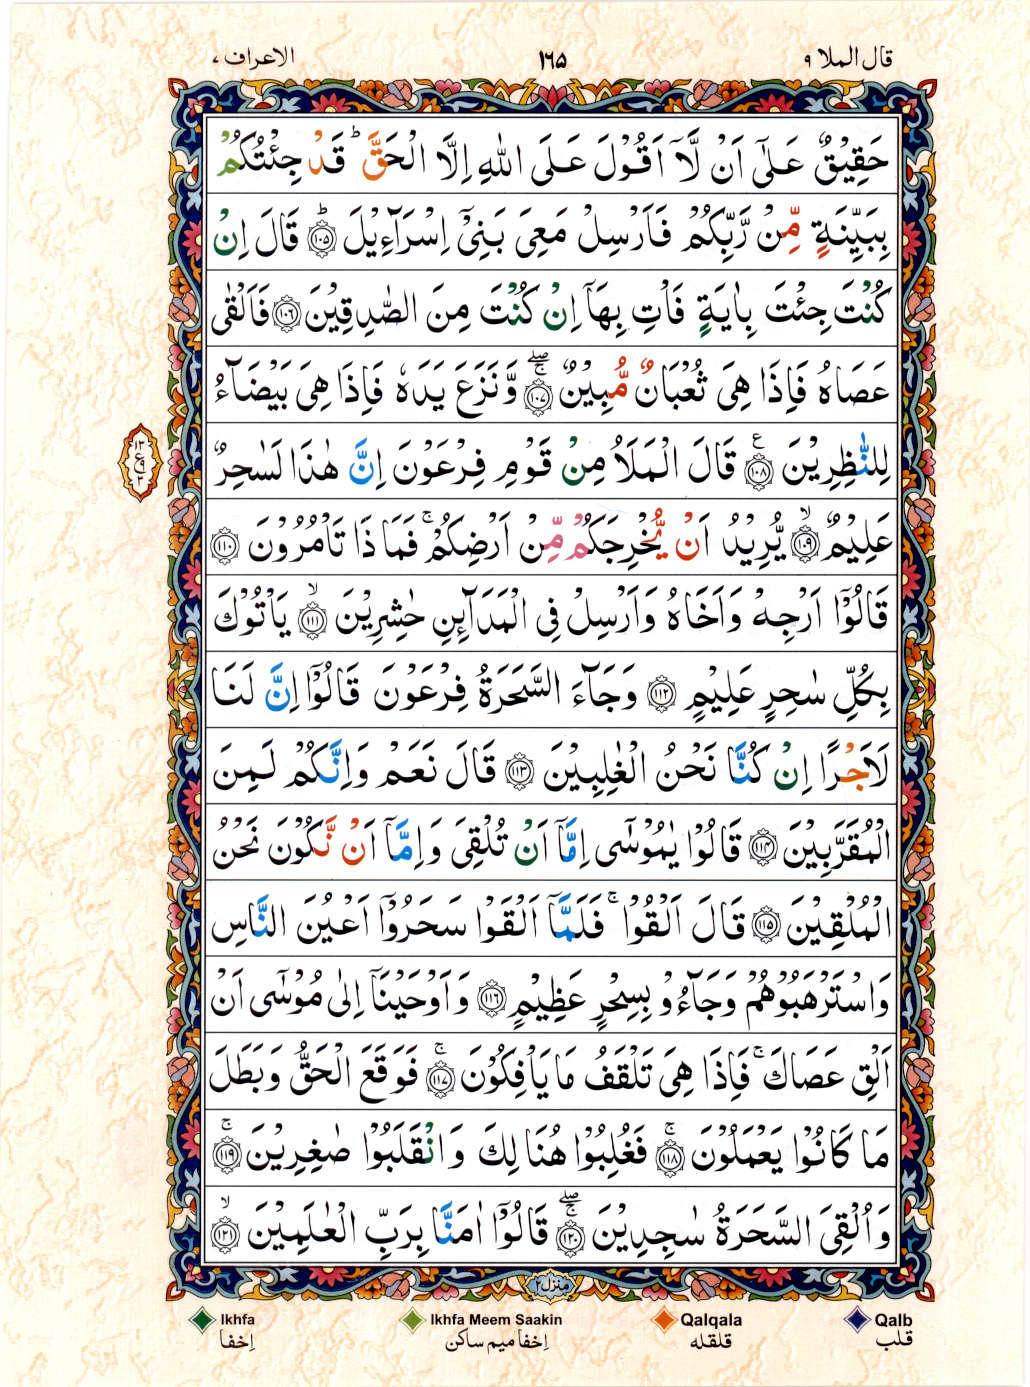 قال الملا ۹
۱۶۵
الاعراف ۷
حَقِيْقٌ عَلٰٓى اَنْ لَّاۤ اَقُوْلَ عَلَى اللّٰهِ اِلَّا الْحَقَّ ؕ قَدْ جِئْتُكُمْ
بِبَيِّنَةٍ مِّنْ رَّبِّكُمْ فَاَرْسِلْ مَعِىَ بَنِىْۤ اِسْرَآءِيْلَ ؕ﴿۱۰۵﴾ قَالَ اِنْ
كُنْتَ جِئْتَ بِاٰيَةٍ فَاْتِ بِهَاۤ اِنْ كُنْتَ مِنَ الصّٰدِقِيْنَ ﴿۱۰۶﴾ فَاَلْقٰى
عَصَاهُ فَاِذَا هِىَ ثُعْبَانٌ مُّبِيْنٌ ۖۚ﴿۱۰۷﴾ وَّنَزَعَ يَدَهٗ فَاِذَا هِىَ بَيْضَآءُ
۱۳
ع
۳
لِلنّٰظِرِيْنَ ﴿۱۰۸﴾ ع قَالَ الْمَلَاُ مِنْ قَوْمِ فِرْعَوْنَ اِنَّ هٰذَا لَسٰحِرٌ
عَلِيْمٌ ۙ﴿۱۰۹﴾ يُّرِيْدُ اَنْ يُّخْرِجَكُمْ مِّنْ اَرْضِكُمْ ۚ فَمَاذَا تَاْمُرُوْنَ ﴿۱۱۰﴾
قَالُوْۤا اَرْجِهْ وَاَخَاهُ وَاَرْسِلْ فِى الْمَدَآئِنِ حٰشِرِيْنَ ۙ﴿۱۱۱﴾ يَاْتُوْكَ
بِكُلِّ سٰحِرٍ عَلِيْمٍ ﴿۱۱۲﴾ وَجَآءَ السَّحَرَةُ فِرْعَوْنَ قَالُوْۤا اِنَّ لَنَا
لَاَجْرًا اِنْ كُنَّا نَحْنُ الْغٰلِبِيْنَ ﴿۱۱۳﴾ قَالَ نَعَمْ وَاِنَّكُمْ لَمِنَ
الْمُقَرَّبِيْنَ ﴿۱۱۴﴾ قَالُوْا يٰمُوْسٰٓى اِمَّاۤ اَنْ تُلْقِىَ وَاِمَّاۤ اَنْ نَّكُوْنَ نَحْنُ
الْمُلْقِيْنَ ﴿۱۱۵﴾ قَالَ اَلْقُوْا ۚ فَلَمَّاۤ اَلْقَوْا سَحَرُوْۤا اَعْيُنَ النَّاسِ
وَاسْتَرْهَبُوْهُمْ وَجَآءُوْ بِسِحْرٍ عَظِيْمٍ ﴿۱۱۶﴾ وَاَوْحَيْنَاۤ اِلٰى مُوْسٰٓى اَنْ
اَلْقِ عَصَاكَ ۚ فَاِذَا هِىَ تَلْقَفُ مَا يَاْفِكُوْنَ ۚ﴿۱۱۷﴾ فَوَقَعَ الْحَقُّ وَبَطَلَ
مَا كَانُوْا يَعْمَلُوْنَ ۚ﴿۱۱۸﴾ فَغُلِبُوْا هُنَالِكَ وَانْقَلَبُوْا صٰغِرِيْنَ ۚ﴿۱۱۹﴾
وَاُلْقِىَ السَّحَرَةُ سٰجِدِيْنَ ۖۚ﴿۱۲۰﴾ قَالُوْۤا اٰمَنَّا بِرَبِّ الْعٰلَمِيْنَ ۙ﴿۱۲۱﴾
منزل ۲
Ikhfa Ikhfa Meem Saakin Qalqala Qalb
اِخفا اِخفا میم ساکن قلقله قلب